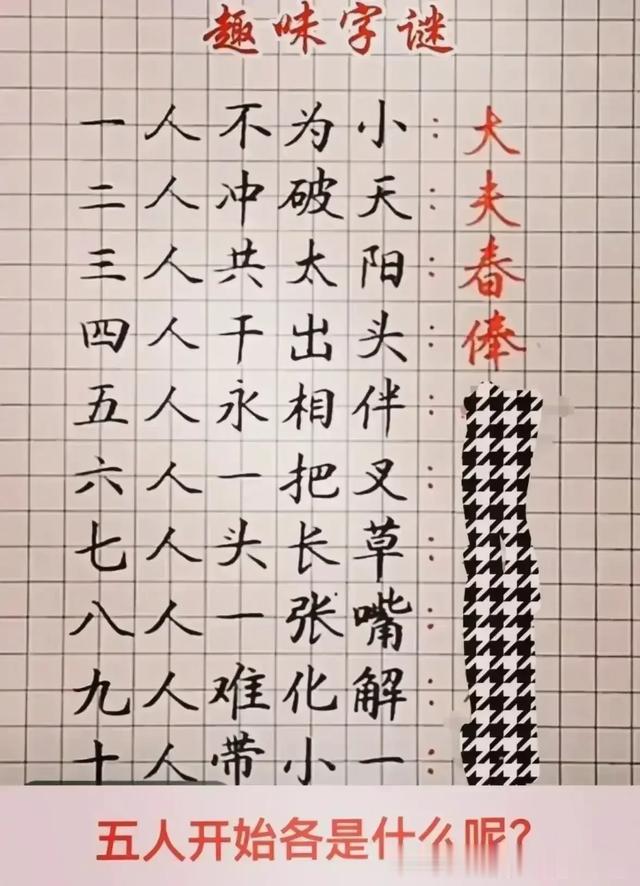 趣味字谜
一人不为小：大
二人冲破天：夫
三人共太阳：春
四人干出头：俸
五人永相伴：
六人一把叉：
七人头长草：
八人一张嘴：
九人难化解：
十人带小一：
五人开始各是什么呢?